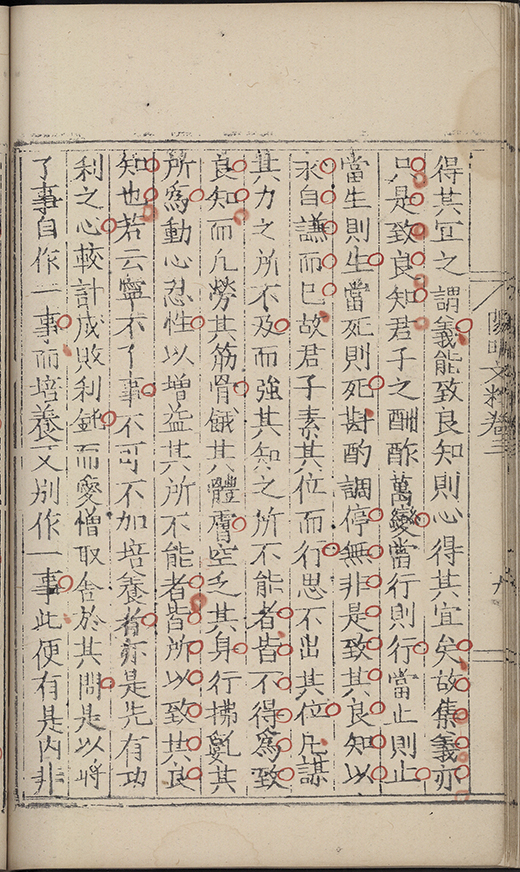 得其宜之謂義能致良知則心得其宜矣故集義亦
只是致良知君子之酬酢萬變當行則行當止則止
當生則生當死則死斟酌調停無非是致其良知以
求自謙而已故君子素其位而行思不出其位凡謀
其力之所不及而強其知之所不能者皆不得為致
良知而凡勞其筋骨餓其體膚空乏其身行拂亂其
所為動心忍性以增益其所不能者皆所以致其良
知也若云寧不了事不可不加培養者亦是先有功
利之心較計成敗利鈍而愛憎取舍於其間是以將
了事自作一事而培養又別作一事此便有是內非
陽明文粹卷三
九